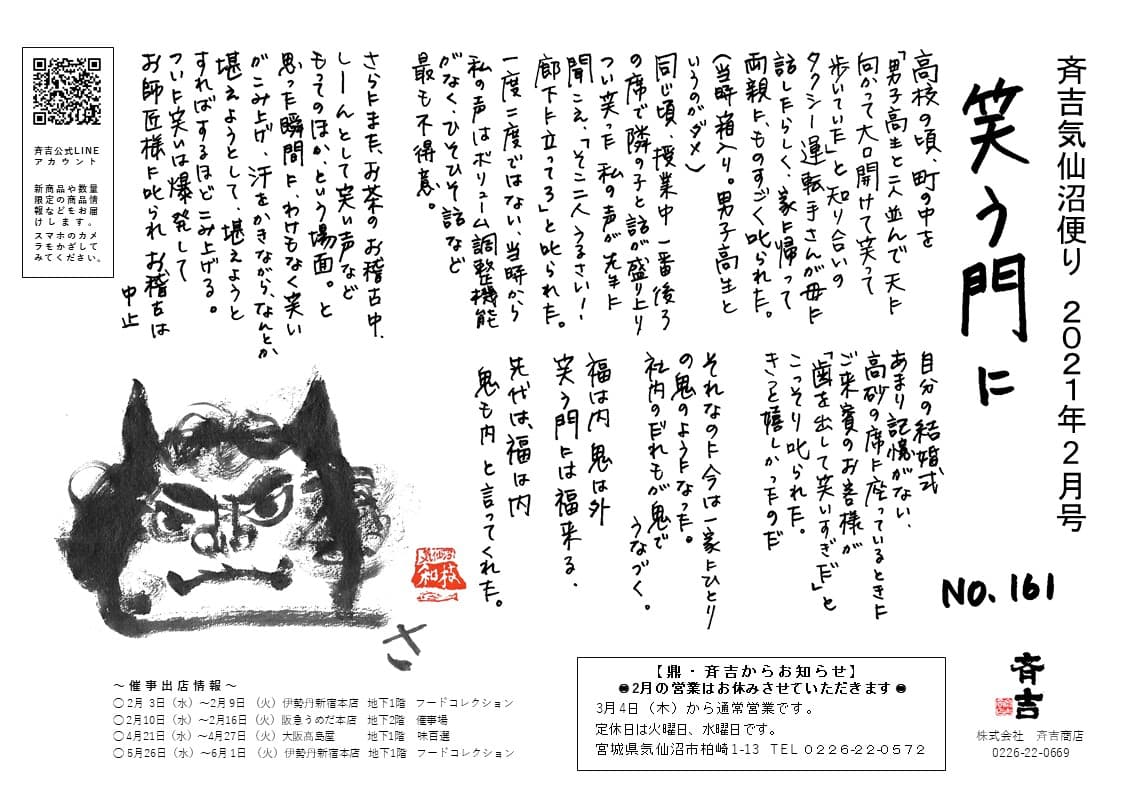 斉吉気仙沼便り 2021年2月号
笑う門に
NO.161
高校の頃、町の中を
「男子高生と二人並んで天に
向かって大口開けて笑って
歩いていた」と知り合いの
タクシー運転手さんが母に
話したらしく、家に帰って
両親に、ものすごく叱られた。
(当時箱入り。男子高生と
いうのがダメ)
同じ頃、授業中一番後ろ
の席で隣の子と話が盛り上り
つい笑った私の声が先生に
聞こえ、「そこ二人うるさい!
廊下に立ってろ」と叱られた。
一度二度ではない、当時から
私の声はボリューム調整機能
がなく、ひそひそ話など
最も不得意。
さらにまた、お茶のお稽古中、
しーんとして笑い声など
もってのほか、という場面。と
思った瞬間に、わけもなく笑い
がこみ上げ、汗をかきながら、なんとか
堪えようとして、堪えようと
すればするほどこみ上げる。
ついに笑いは爆発して
お師匠様に叱られ お稽古は
中止
自分の結婚式
あまり記憶がない、
高砂の席に座っているときに
ご来賓のお客様が
「歯を出して笑いすぎだ」と
こっそり叱られた。
きっと嬉しかったのだ
それなのに今は一家にひとり
の鬼のようになった。
社内のだれもが鬼で
うなづく。
福は内 鬼は外
笑う門には福来る、
先代は、福は内
鬼も内 と言ってくれた。
さ
斉吉公式LINE
アカウント
新商品や数量
限定の商品情
報などもお届
けします。
スマホのカメ
ラをかざして
みてください。
～催事出店情報～
○2月 3日(水)～2月9日 (火)伊勢丹新宿本店 地下1階 フードコレクション
○2月10日(水)～2月16日(火)阪急うめだ本店 地下2階 催事場
○4月21日(水)～4月27日(火)大阪髙島屋 地下1階 味百選
○5月26日(水)～6月1日 (火)伊勢丹新宿本店 地下1階 フードコレクション
【鼎・斉吉からお知らせ】
●2月の営業はお休みさせていただきます●
3月4日(木)から通常営業です。
定休日は火曜日、水曜日です。
宮城県気仙沼市柏崎1-13 TEL 0226-22-0572
斉吉
株式会社 斉吉商店
0226-22-0669